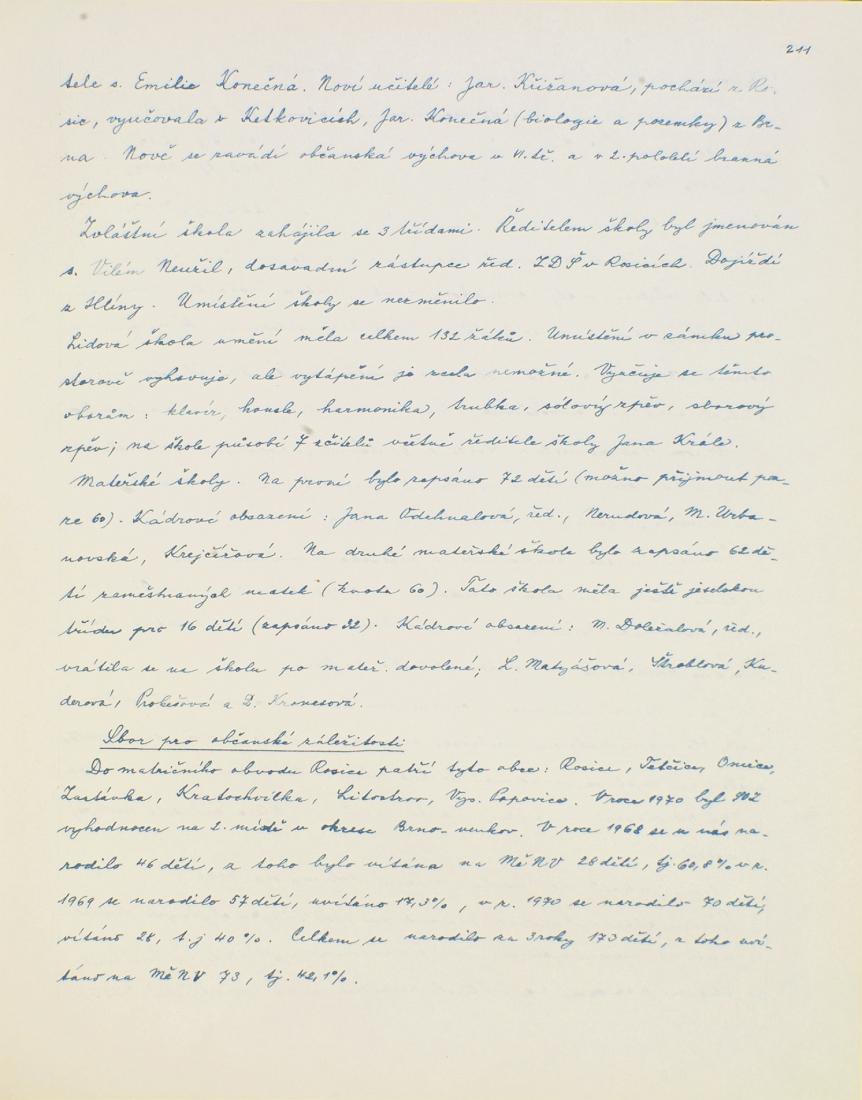 211
tele s. Emilie Konečná. Noví učitelé: Jar. Křižanová, pochází z Ro-
sic, vyučovala v Ketkovicích, Jar. Konečná (biologie a pozemky) z Br-
na. Nově se zavádí občanská výchova v 6. tř. a v 2. pololetí branná
výchova.
Zvláštní škola zahájila se 3 třídami. Ředitelem školy byl jmenován
s. Vilém Neužil, dosavadní zástupce řed. ZDŠ v Rosicích. Dojíždí
z Hlíny. Umístění školy se nezměnilo.
Lidová škola umění měla celkem 132 žáků. Umístění v zámku pro-
storově vyhovuje, ale vytápění je zcela nemožné. Vyučuje se těmto
oborům: klavír, housle, harmonika, trubka, sólový zpěv, sborový
zpěv; na škole působí 7 učitelů včetně ředitele školy Jana Krále.
Mateřské školy. Na první bylo zapsáno 72 dětí (možno přijmout pou-
ze 60). Kádrové obsazení: Jana Odehnalová, řed., Nerudová, M. Urba-
novská, Krejčířová. Na druhé mateřské škole bylo zapsáno 62 dě-
tí zaměstnaných matek (kvota 60). Tato škola měla ještě jeselskou
třídu pro 16 dětí (zapsáno 22). Kádrové obsazení: M. Doležalová, řed.,
vrátila se na školu po mateř. dovolené; L. Matyášová, Škroblová, Ku-
derová, Probešová a D. Kranesová.
Sbor pro občanské záležitosti
Do matričního obvodu Rosice patří tyto obce: Rosice, Tetčice, Omice,
Zastávka, Kratochvilka, Litostrov, Vys. Popovice. V roce 1970 byl SOZ
vyhodnocen na 2. místě v okrese Brno-venkov. V roce 1968 se u nás na-
rodilo 46 dětí, z toho bylo vítána na MěNV 28 dětí, tj. 60,8% v r.
1969 se narodilo 57 dětí, uvítáno 17,3%, v r. 1970 se narodilo 70 dětí,
vítáno 28, t.j 40%. Celkem se narodilo za 3 roky 173 dětí, z toho uví-
táno na MěNV 73, tj. 42,1%.